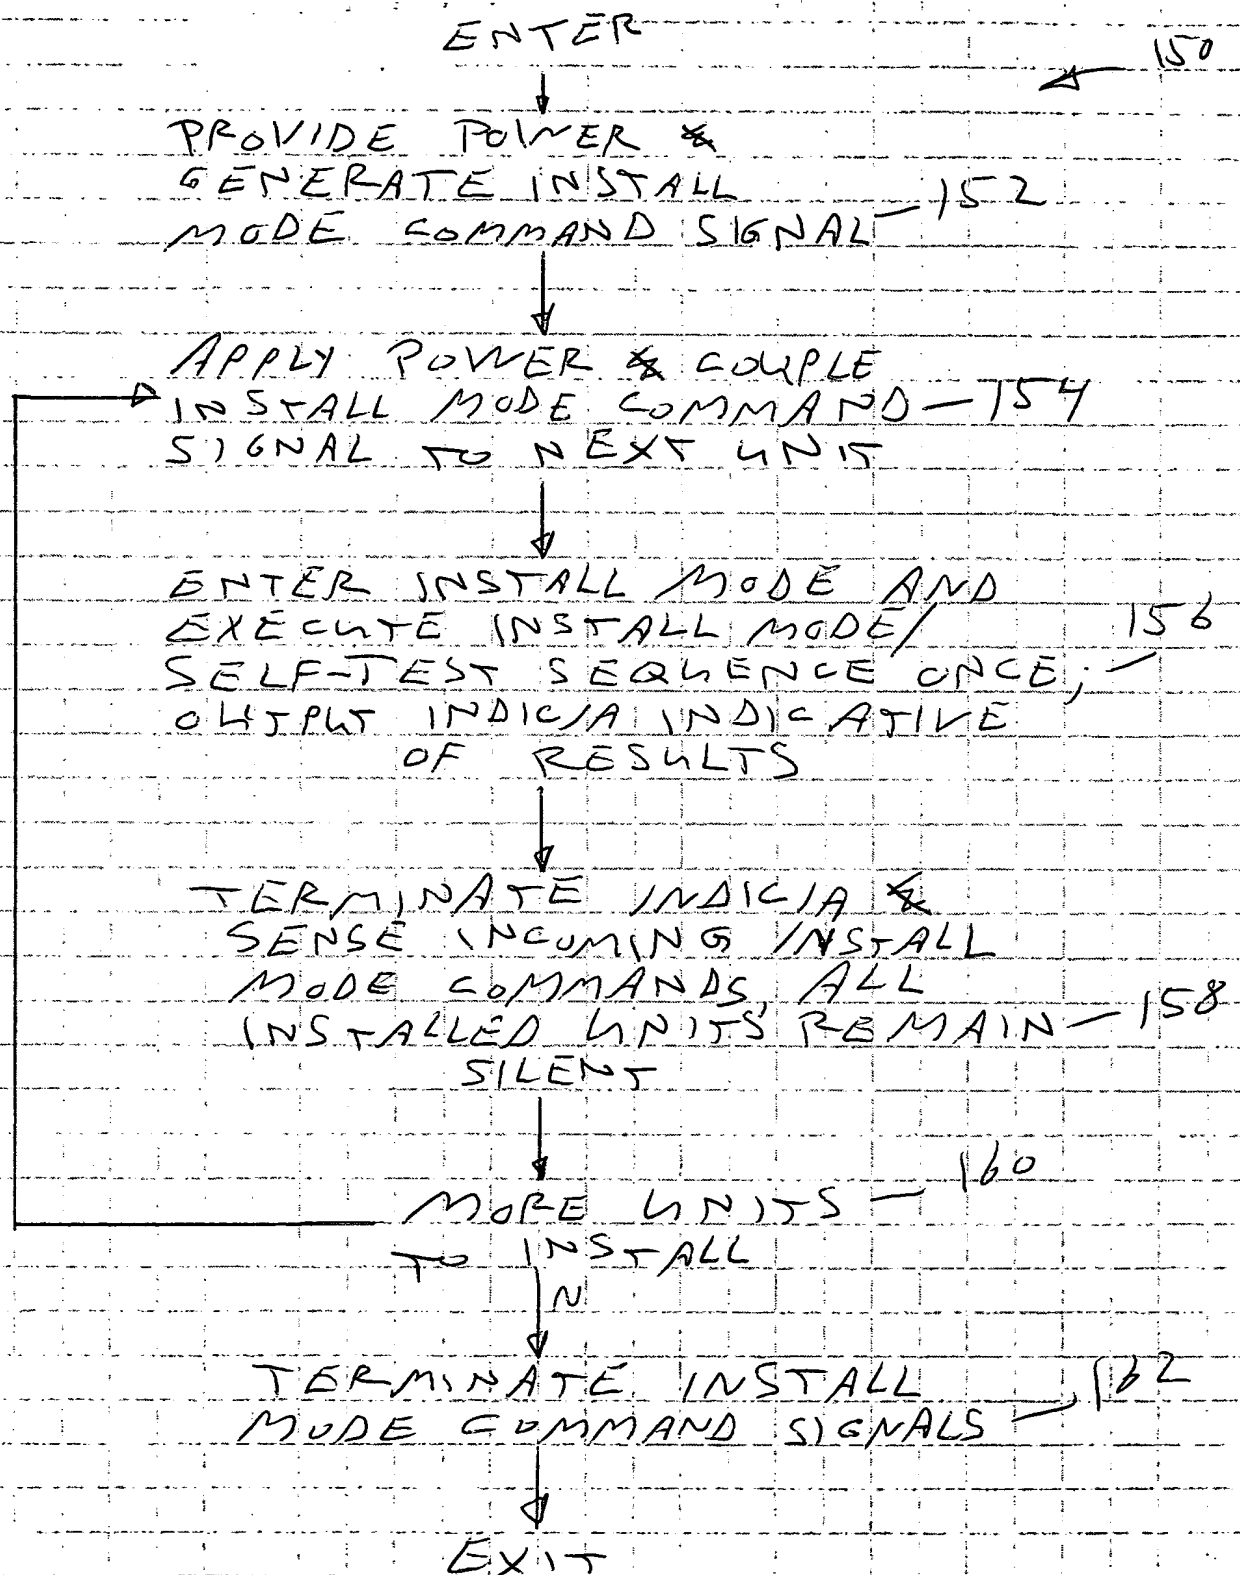 ENTER
150
PROVIDE POWER &
GENERATE INSTALL
MODE COMMAND SIGNAL 152
APPLY POWER & COUPLE
INSTALL MODE COMMAND 154
SIGNAL TO NEXT UNIT
ENTER INSTALL MODE AND
EXECUTE INSTALL MODE/ 156
SELF-TEST SEQUENCE ONCE;
OUTPUT INDICIA INDICATIVE
OF RESULTS
TERMINATE INDICIA &
SENSE INCOMING INSTALL
MODE COMMANDS, ALL
INSTALLED UNITS REMAIN 158
SILENT
MORE UNITS 160
TO INSTALL
N
TERMINATE INSTALL 162
MODE COMMAND SIGNALS
EXIT